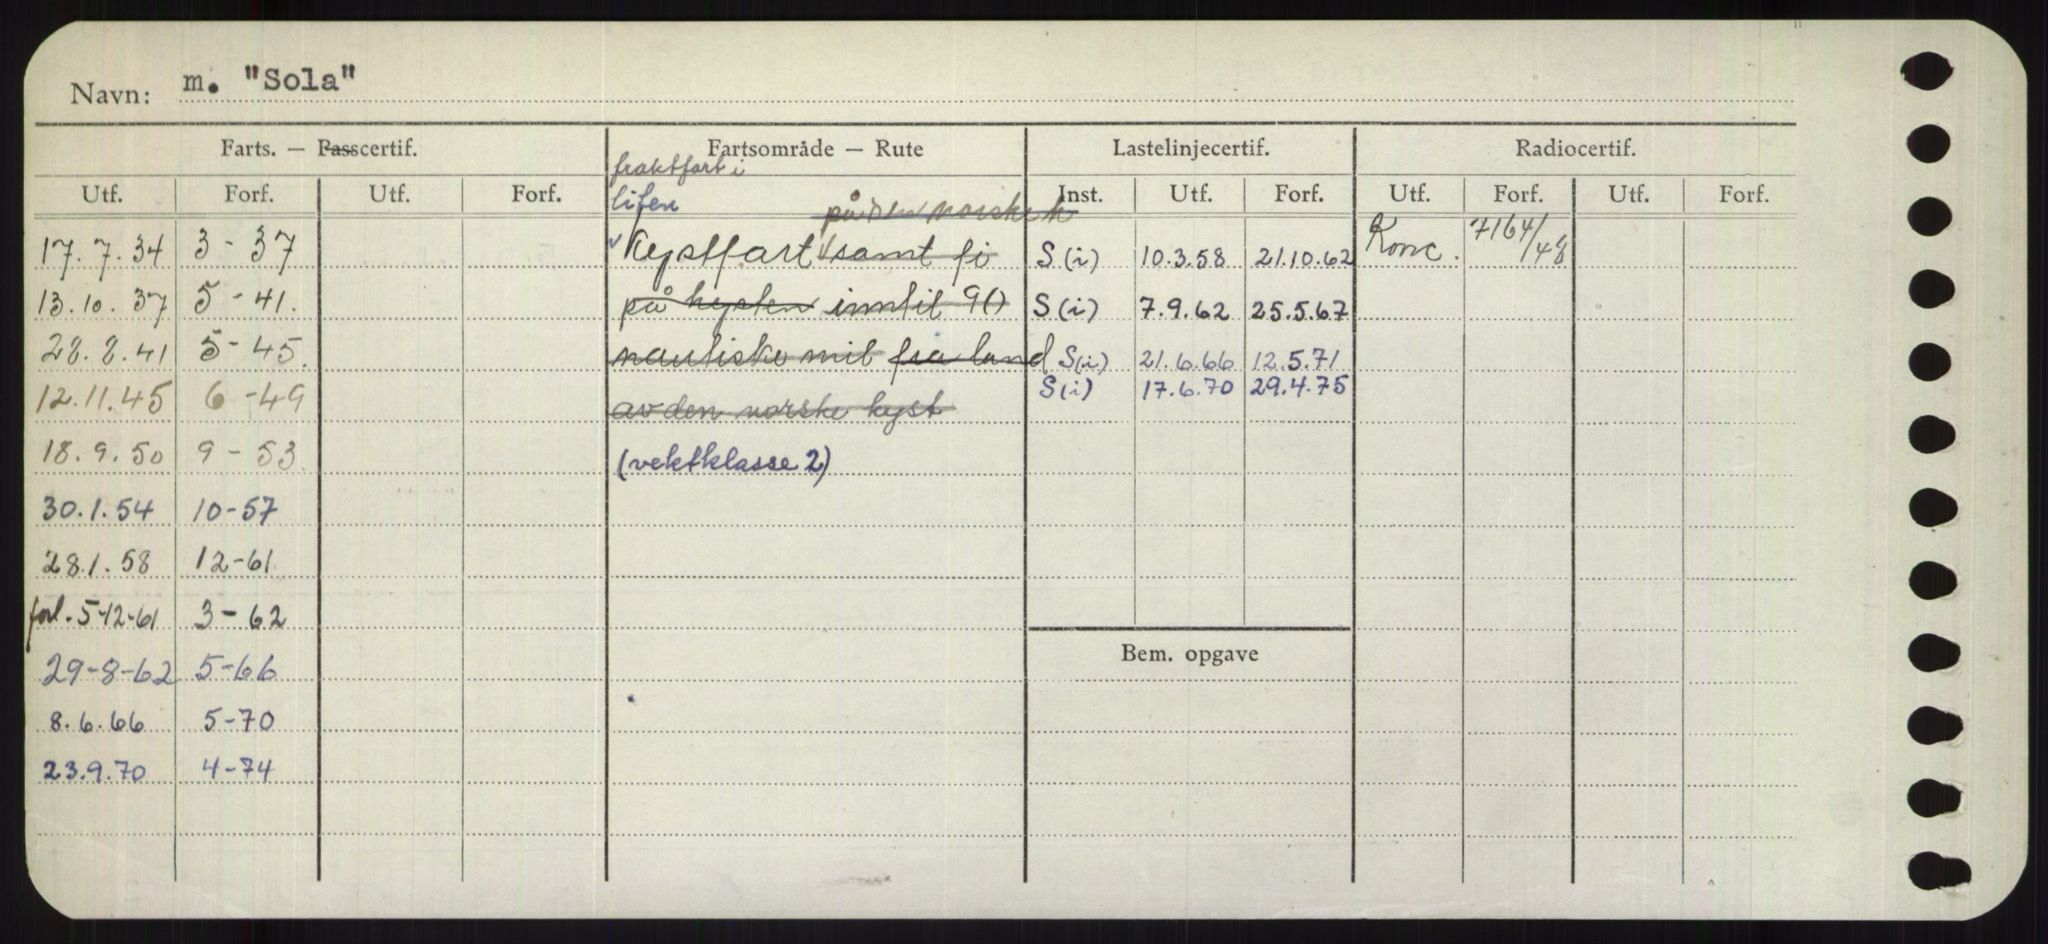 Navn: m. "Sola"
Farts. — Passcertif. Fartsområde — Rute Lastelinjecertif. Radiocertif.
fraktfart i
Utf. Forf. Utf. Forf. Inst. Utf. Forf. Utf. Forf. Utf. Forf.
liten
på den norske k
17.7.34 3 - 37 Kystfart samt fi S (i) 10.3.58 21.10.62 Konc. 7164/48
13.10.37 5 - 41. på kysten inntil 90 S (i) 7.9.62 25.5.67
28.8.41 5 - 45. nautiske mil fra land S(i) 21.6.66 12.5.71
12.11.45 6 - 49 av den norske kyst S(i) 17.6.70 29.4.75
18.9.50 9 - 53 (vektklasse 2)
30.1.54 10-57
28.1.58 12-61
forl. 5-12-61 3 - 62
Bem. opgave
29-8-62 5-66
8.6.66 5-70
23.9.70 4-74